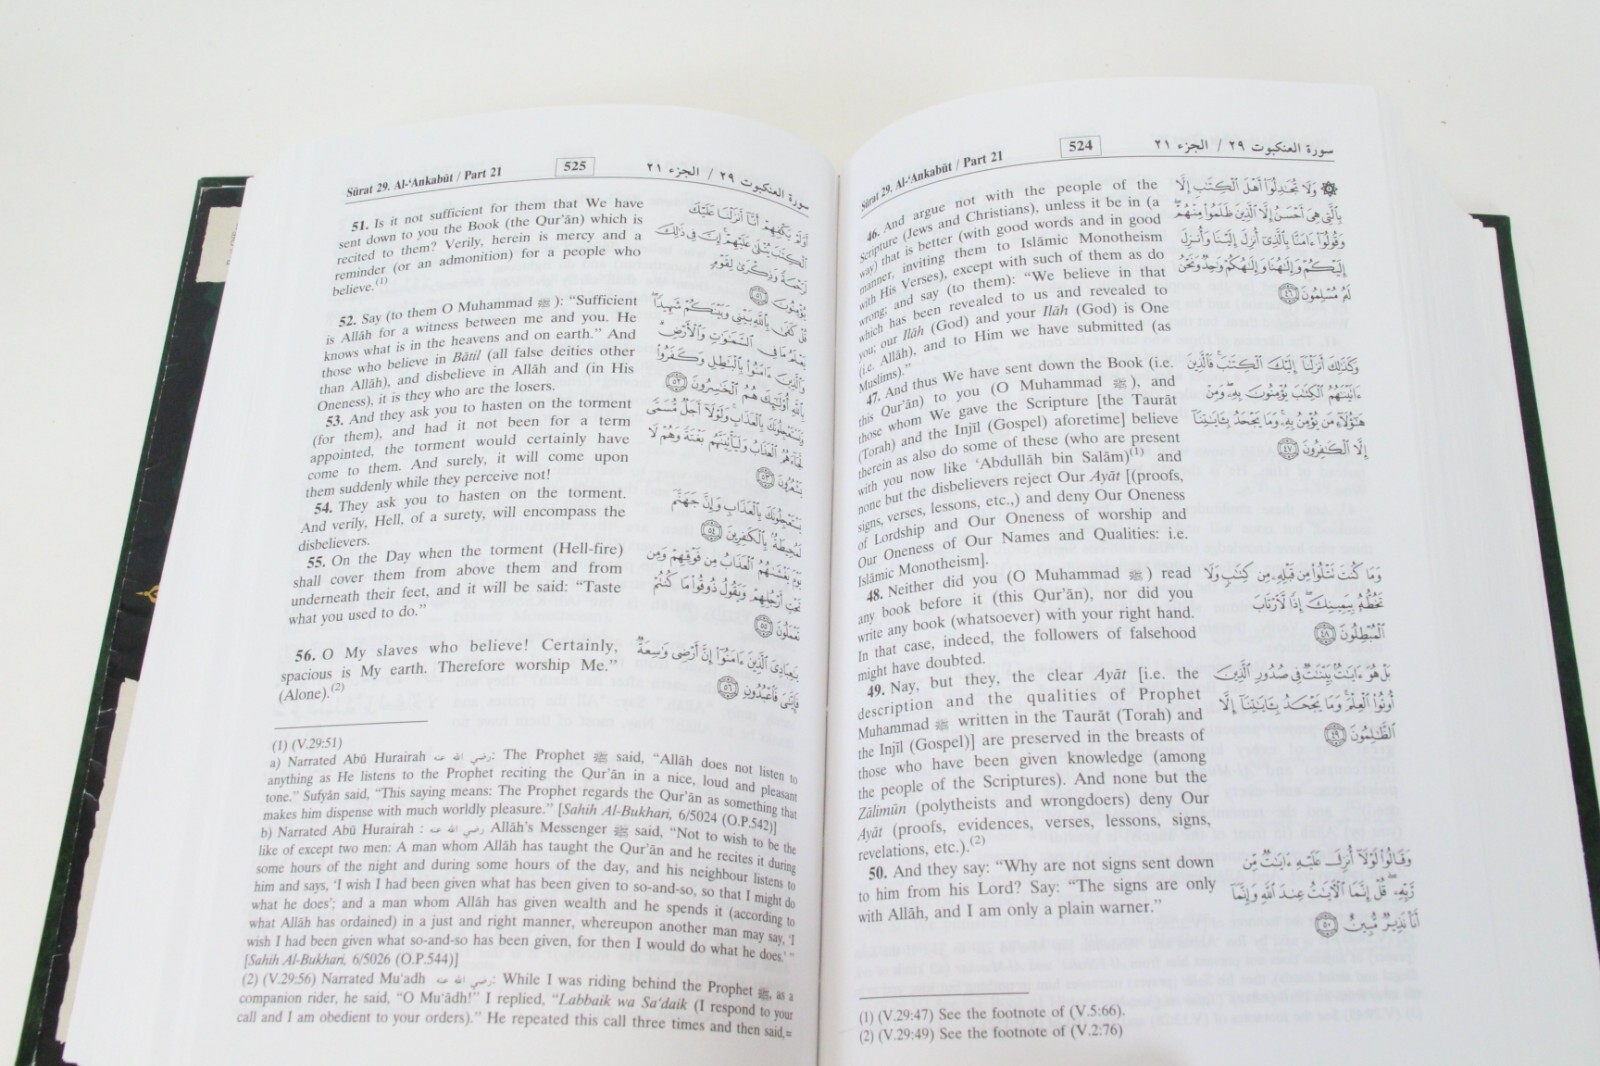 Sūrat 29. Al-'Ankabūt / Part 21
524
سورة العنكبوت ٢٩ / الجزء ٢١
46. And argue not with the people of the
Scripture (Jews and Christians), unless it be in (a
way) that is better (with good words and in good
manner, inviting them to Islāmic Monotheism
with His Verses), except with such of them as do
wrong; and say (to them): “We believe in that
which has been revealed to us and revealed to
you; our Ilāh (God) and your Ilāh (God) is One
(i.e. Allāh), and to Him we have submitted (as
Muslims).”
47. And thus We have sent down the Book (i.e.
this Qur'ān) to you (O Muhammad ﷺ), and
those whom We gave the Scripture [the Taurāt
(Torah) and the Injīl (Gospel) aforetime] believe
therein as also do some of these (who are present
with you now like 'Abdullāh bin Salām)(1) and
none but the disbelievers reject Our Ayāt [(proofs,
signs, verses, lessons, etc.,) and deny Our Oneness
of Lordship and Our Oneness of worship and
Our Oneness of Our Names and Qualities: i.e.
Islāmic Monotheism].
48. Neither did you (O Muhammad ﷺ) read
any book before it (this Qur'ān), nor did you
write any book (whatsoever) with your right hand.
In that case, indeed, the followers of falsehood
might have doubted.
49. Nay, but they, the clear Ayāt [i.e. the
description and the qualities of Prophet
Muhammad ﷺ written in the Taurāt (Torah) and
the Injīl (Gospel)] are preserved in the breasts of
those who have been given knowledge (among
the people of the Scriptures). And none but the
Zālimūn (polytheists and wrongdoers) deny Our
Ayāt (proofs, evidences, verses, lessons, signs,
revelations, etc.).(2)
50. And they say: “Why are not signs sent down
to him from his Lord? Say: “The signs are only
with Allāh, and I am only a plain warner.”
۞ وَلَا تُجَٰدِلُوٓا۟ أَهْلَ ٱلْكِتَٰبِ إِلَّا
بِٱلَّتِى هِىَ أَحْسَنُ إِلَّا ٱلَّذِينَ ظَلَمُوا۟ مِنْهُمْ ۖ
وَقُولُوٓا۟ ءَامَنَّا بِٱلَّذِىٓ أُنزِلَ إِلَيْنَا وَأُنزِلَ
إِلَيْكُمْ وَإِلَٰهُنَا وَإِلَٰهُكُمْ وَٰحِدٌ وَنَحْنُ
لَهُۥ مُسْلِمُونَ ٤٦
وَكَذَٰلِكَ أَنزَلْنَآ إِلَيْكَ ٱلْكِتَٰبَ ۚ فَٱلَّذِينَ
ءَاتَيْنَٰهُمُ ٱلْكِتَٰبَ يُؤْمِنُونَ بِهِۦ ۖ وَمِنْ
هَٰٓؤُلَآءِ مَن يُؤْمِنُ بِهِۦ ۚ وَمَا يَجْحَدُ بِـَٔايَٰتِنَآ
إِلَّا ٱلْكَٰفِرُونَ ٤٧
وَمَا كُنتَ تَتْلُوا۟ مِن قَبْلِهِۦ مِن كِتَٰبٍ وَلَا
تَخُطُّهُۥ بِيَمِينِكَ ۖ إِذًا لَّٱرْتَابَ
ٱلْمُبْطِلُونَ ٤٨
بَلْ هُوَ ءَايَٰتٌۢ بَيِّنَٰتٌ فِى صُدُورِ ٱلَّذِينَ
أُوتُوا۟ ٱلْعِلْمَ ۚ وَمَا يَجْحَدُ بِـَٔايَٰتِنَآ إِلَّا
ٱلظَّٰلِمُونَ ٤٩
وَقَالُوا۟ لَوْلَآ أُنزِلَ عَلَيْهِ ءَايَٰتٌ مِّن
رَّبِّهِۦ ۖ قُلْ إِنَّمَا ٱلْـَٔايَٰتُ عِندَ ٱللَّهِ وَإِنَّمَآ
أَنَا۠ نَذِيرٌ مُّبِينٌ ٥٠
(1) (V.29:47) See the footnote of (V.5:66).
(2) (V.29:49) See the footnote of (V.2:76)
Sūrat 29. Al-'Ankabūt / Part 21
525
سورة العنكبوت ٢٩ / الجزء ٢١
51. Is it not sufficient for them that We have
sent down to you the Book (the Qur'ān) which is
recited to them? Verily, herein is mercy and a
reminder (or an admonition) for a people who
believe.(1)
52. Say (to them O Muhammad ﷺ): “Sufficient
is Allāh for a witness between me and you. He
knows what is in the heavens and on earth.” And
those who believe in Bātil (all false deities other
than Allāh), and disbelieve in Allāh and (in His
Oneness), it is they who are the losers.
53. And they ask you to hasten on the torment
(for them), and had it not been for a term
appointed, the torment would certainly have
come to them. And surely, it will come upon
them suddenly while they perceive not!
54. They ask you to hasten on the torment.
And verily, Hell, of a surety, will encompass the
disbelievers.
55. On the Day when the torment (Hell-fire)
shall cover them from above them and from
underneath their feet, and it will be said: “Taste
what you used to do.”
56. O My slaves who believe! Certainly,
spacious is My earth. Therefore worship Me.”
(Alone).(2)
أَوَلَمْ يَكْفِهِمْ أَنَّآ أَنزَلْنَا عَلَيْكَ
ٱلْكِتَٰبَ يُتْلَىٰ عَلَيْهِمْ ۚ إِنَّ فِى ذَٰلِكَ
لَرَحْمَةً وَذِكْرَىٰ لِقَوْمٍ
يُؤْمِنُونَ ٥١
قُلْ كَفَىٰ بِٱللَّهِ بَيْنِى وَبَيْنَكُمْ شَهِيدًا ۖ
يَعْلَمُ مَا فِى ٱلسَّمَٰوَٰتِ وَٱلْأَرْضِ ۗ
وَٱلَّذِينَ ءَامَنُوا۟ بِٱلْبَٰطِلِ وَكَفَرُوا۟
بِٱللَّهِ أُو۟لَٰٓئِكَ هُمُ ٱلْخَٰسِرُونَ ٥٢
وَيَسْتَعْجِلُونَكَ بِٱلْعَذَابِ ۚ وَلَوْلَآ أَجَلٌ مُّسَمًّى
لَّجَآءَهُمُ ٱلْعَذَابُ وَلَيَأْتِيَنَّهُم بَغْتَةً وَهُمْ لَا
يَشْعُرُونَ ٥٣
يَسْتَعْجِلُونَكَ بِٱلْعَذَابِ وَإِنَّ جَهَنَّمَ
لَمُحِيطَةٌۢ بِٱلْكَٰفِرِينَ ٥٤
يَوْمَ يَغْشَىٰهُمُ ٱلْعَذَابُ مِن فَوْقِهِمْ وَمِن
تَحْتِ أَرْجُلِهِمْ وَيَقُولُ ذُوقُوا۟ مَا كُنتُمْ
تَعْمَلُونَ ٥٥
يَٰعِبَادِىَ ٱلَّذِينَ ءَامَنُوٓا۟ إِنَّ أَرْضِى وَٰسِعَةٌ
فَإِيَّٰىَ فَٱعْبُدُونِ ٥٦
(1) (V.29:51)
a) Narrated Abū Hurairah رضي الله عنه: The Prophet ﷺ said, “Allāh does not listen to
anything as He listens to the Prophet reciting the Qur'ān in a nice, loud and pleasant
tone.” Sufyān said, “This saying means: The Prophet regards the Qur'ān as something that
makes him dispense with much worldly pleasure.” [Sahih Al-Bukhari, 6/5024 (O.P.542)]
b) Narrated Abū Hurairah : رضي الله عنه Allāh's Messenger ﷺ said, “Not to wish to be the
like of except two men: A man whom Allāh has taught the Qur'ān and he recites it during
some hours of the night and during some hours of the day, and his neighbour listens to
him and says, ‘I wish I had been given what has been given to so-and-so, so that I might do
what he does’; and a man whom Allāh has given wealth and he spends it (according to
what Allāh has ordained) in a just and right manner, whereupon another man may say, ‘I
wish I had been given what so-and-so has been given, for then I would do what he does.’ ”
[Sahih Al-Bukhari, 6/5026 (O.P.544)]
(2) (V.29:56) Narrated Mu'adh رضي الله عنه: While I was riding behind the Prophet ﷺ, as a
companion rider, he said, “O Mu'ādh!” I replied, “Labbaik wa Sa'daik (I respond to your
call and I am obedient to your orders).” He repeated this call three times and then said,=